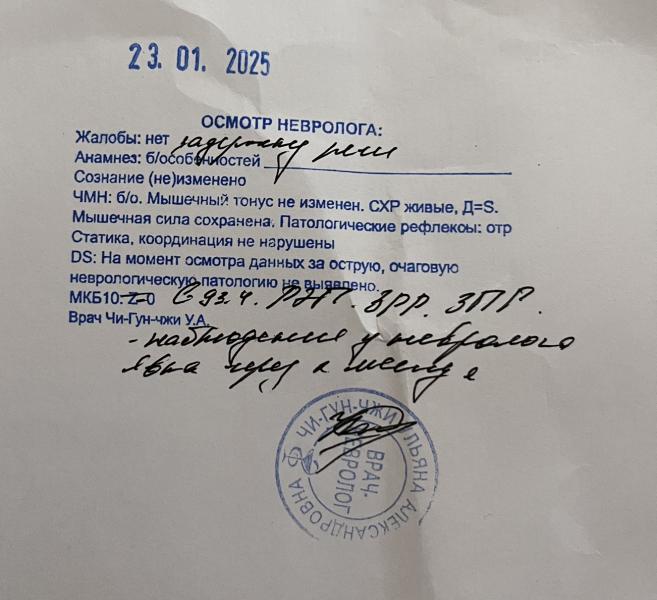 23. 01. 2025
ОСМОТР НЕВРОЛОГА:
Жалобы: нет задержку речи
Анамнез: б/особенностей
Сознание (не)изменено
ЧМН: б/о. Мышечный тонус не изменен. СХР живые, Д=S.
Мышечная сила сохранена. Патологические рефлексы: отр
Статика, координация не нарушены
DS: На момент осмотра данных за острую, очаговую
неврологическую патологию не выявлено.
МКБ10: Z-0 G93.4. РЭП. ЗРР. ЗПР.
Врач Чи-Гун-чжи У.А.
- наблюдение у невролога
явка через месяц
ЧИ-ГУН-ЧЖИ УЛЬЯНА АЛЕКСАНДРОВНА
ВРАЧ-
НЕВРОЛОГ